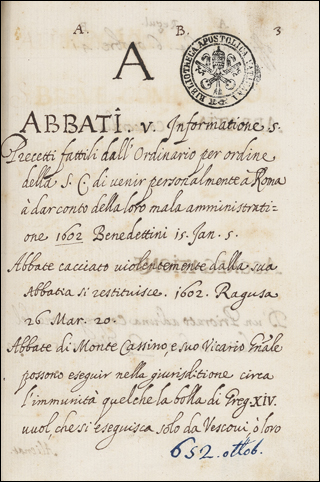 A. B. 3
BIBLIOTHECA APOSTOLICA VATICANA
A
ABBATI. v. Informatione 5.
Precetti fattili dall'Ordinario per ordine
della S. C. di venir personalmente a Roma
à dar conto della loro mala amministrati-
one 1602 Benedettini 15. Jan. 5.
Abbate cacciato violentemente dalla sua
Abbatia si restituisce. 1602. Ragusa
26 Mar. 20.
Abbate di Monte Cassino, e suo Vicario gnãle
possono eseguir nella giurisditione circa
l'immunità quel che la bolla di Greg. XIV.
vuol, che si eseguisca solo da Vescovi, ò loro
652. ottob.